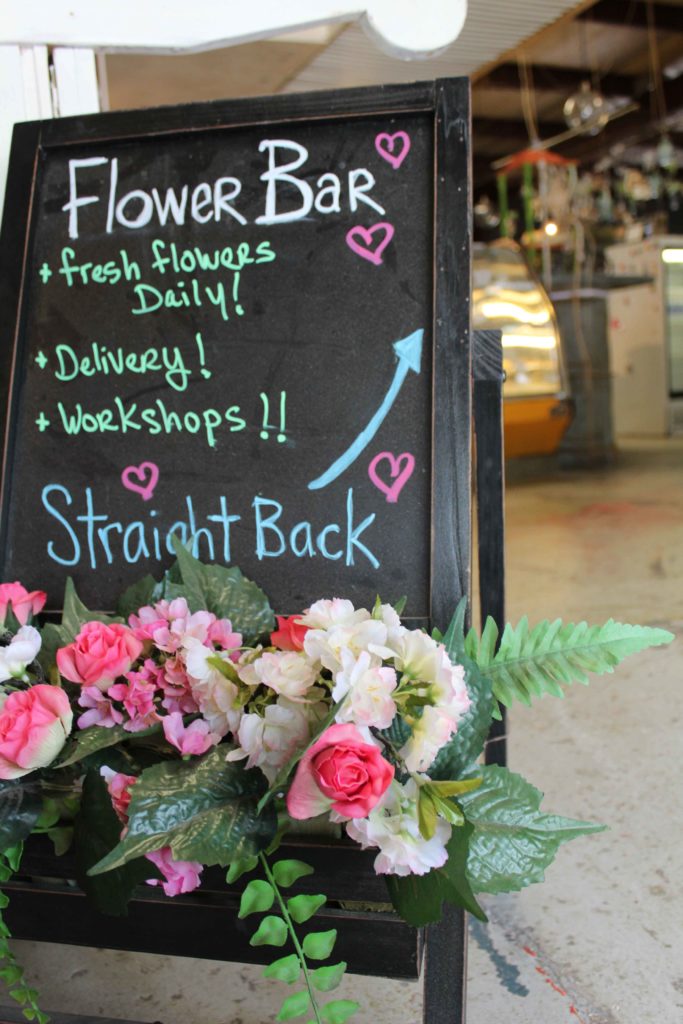 Flower Bar
+ fresh flowers
Daily!
+ Delivery!
+ Workshops!!
Straight Back